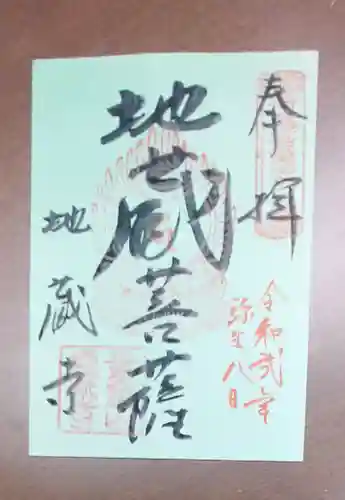 奉拝
令和弐年
弥生八日
地蔵菩薩
地蔵寺